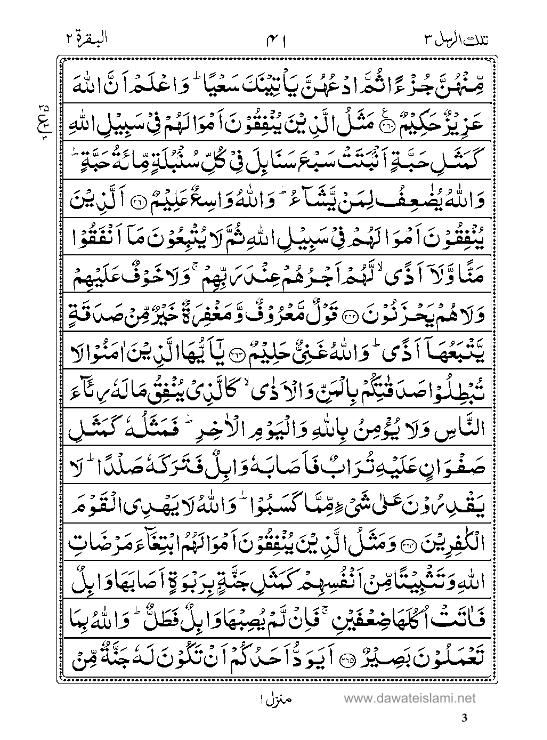 تلك الرسل ٣ ٤١ البقرة ٢
مِّنْهُنَّ جُزْءًا ثُمَّ ادْعُهُنَّ يَاْتِيْنَكَ سَعْيًا ؕ وَاعْلَمْ اَنَّ اللّٰهَ
عَزِيْزٌ حَكِيْمٌ ﴿۲۶۰﴾ مَثَلُ الَّذِيْنَ يُنْفِقُوْنَ اَمْوَالَهُمْ فِيْ سَبِيْلِ اللّٰهِ
كَمَثَلِ حَبَّةٍ اَنْۢبَتَتْ سَبْعَ سَنَابِلَ فِيْ كُلِّ سُنْۢبُلَةٍ مِّائَةُ حَبَّةٍ ؕ
وَاللّٰهُ يُضٰعِفُ لِمَنْ يَّشَآءُ ؕ وَاللّٰهُ وَاسِعٌ عَلِيْمٌ ﴿۲۶۱﴾ اَلَّذِيْنَ
يُنْفِقُوْنَ اَمْوَالَهُمْ فِيْ سَبِيْلِ اللّٰهِ ثُمَّ لَا يُتْبِعُوْنَ مَاۤ اَنْفَقُوْا
مَنًّا وَّلَاۤ اَذًى ۙ لَّهُمْ اَجْرُهُمْ عِنْدَ رَبِّهِمْ ۚ وَلَا خَوْفٌ عَلَيْهِمْ
وَلَا هُمْ يَحْزَنُوْنَ ﴿۲۶۲﴾ قَوْلٌ مَّعْرُوْفٌ وَّمَغْفِرَةٌ خَيْرٌ مِّنْ صَدَقَةٍ
يَّتْبَعُهَاۤ اَذًى ؕ وَاللّٰهُ غَنِيٌّ حَلِيْمٌ ﴿۲۶۳﴾ يٰۤاَيُّهَا الَّذِيْنَ اٰمَنُوْا لَا
تُبْطِلُوْا صَدَقٰتِكُمْ بِالْمَنِّ وَالْاَذٰى ۙ كَالَّذِيْ يُنْفِقُ مَالَهٗ رِئَآءَ
النَّاسِ وَلَا يُؤْمِنُ بِاللّٰهِ وَالْيَوْمِ الْاٰخِرِ ؕ فَمَثَلُهٗ كَمَثَلِ
صَفْوَانٍ عَلَيْهِ تُرَابٌ فَاَصَابَهٗ وَابِلٌ فَتَرَكَهٗ صَلْدًا ؕ لَا
يَقْدِرُوْنَ عَلٰى شَيْءٍ مِّمَّا كَسَبُوْا ؕ وَاللّٰهُ لَا يَهْدِي الْقَوْمَ
الْكٰفِرِيْنَ ﴿۲۶۴﴾ وَمَثَلُ الَّذِيْنَ يُنْفِقُوْنَ اَمْوَالَهُمُ ابْتِغَآءَ مَرْضَاتِ
اللّٰهِ وَتَثْبِيْتًا مِّنْ اَنْفُسِهِمْ كَمَثَلِ جَنَّةٍۭ بِرَبْوَةٍ اَصَابَهَا وَابِلٌ
فَاٰتَتْ اُكُلَهَا ضِعْفَيْنِ ۚ فَاِنْ لَّمْ يُصِبْهَا وَابِلٌ فَطَلٌّ ؕ وَاللّٰهُ بِمَا
تَعْمَلُوْنَ بَصِيْرٌ ﴿۲۶۵﴾ اَيَوَدُّ اَحَدُكُمْ اَنْ تَكُوْنَ لَهٗ جَنَّةٌ مِّنْ
منزل ١
www.dawateislami.net
3